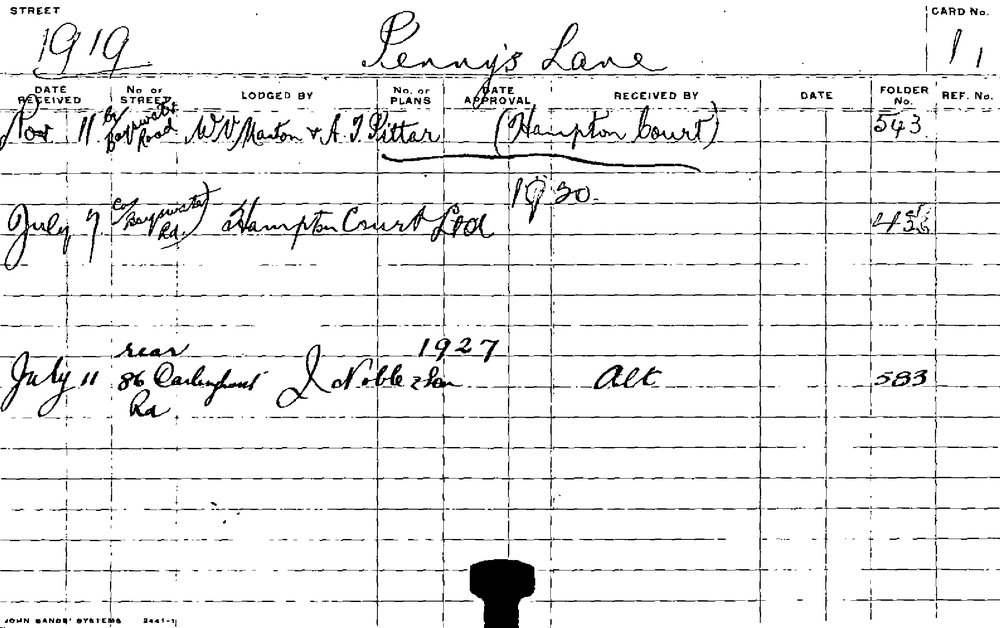 STREET
CARD No.
1919 Penny's Lane 1
DATE RECEIVED No. OF STREET LODGED BY No. OF PLANS DATE APPROVAL RECEIVED BY DATE FOLDER No. REF. No.
Nov 11 Cr Bayswater Road W V Manton & A. J. Pittar (Hampton Court) 543
1920.
July 7. Cor Bayswater Rd. Hampton Court Ltd
1927
July 11 rear 86 Darlinghurst Rd. J Noble & Son Alt 583
JOHN SANDS' SYSTEMS 2441-1